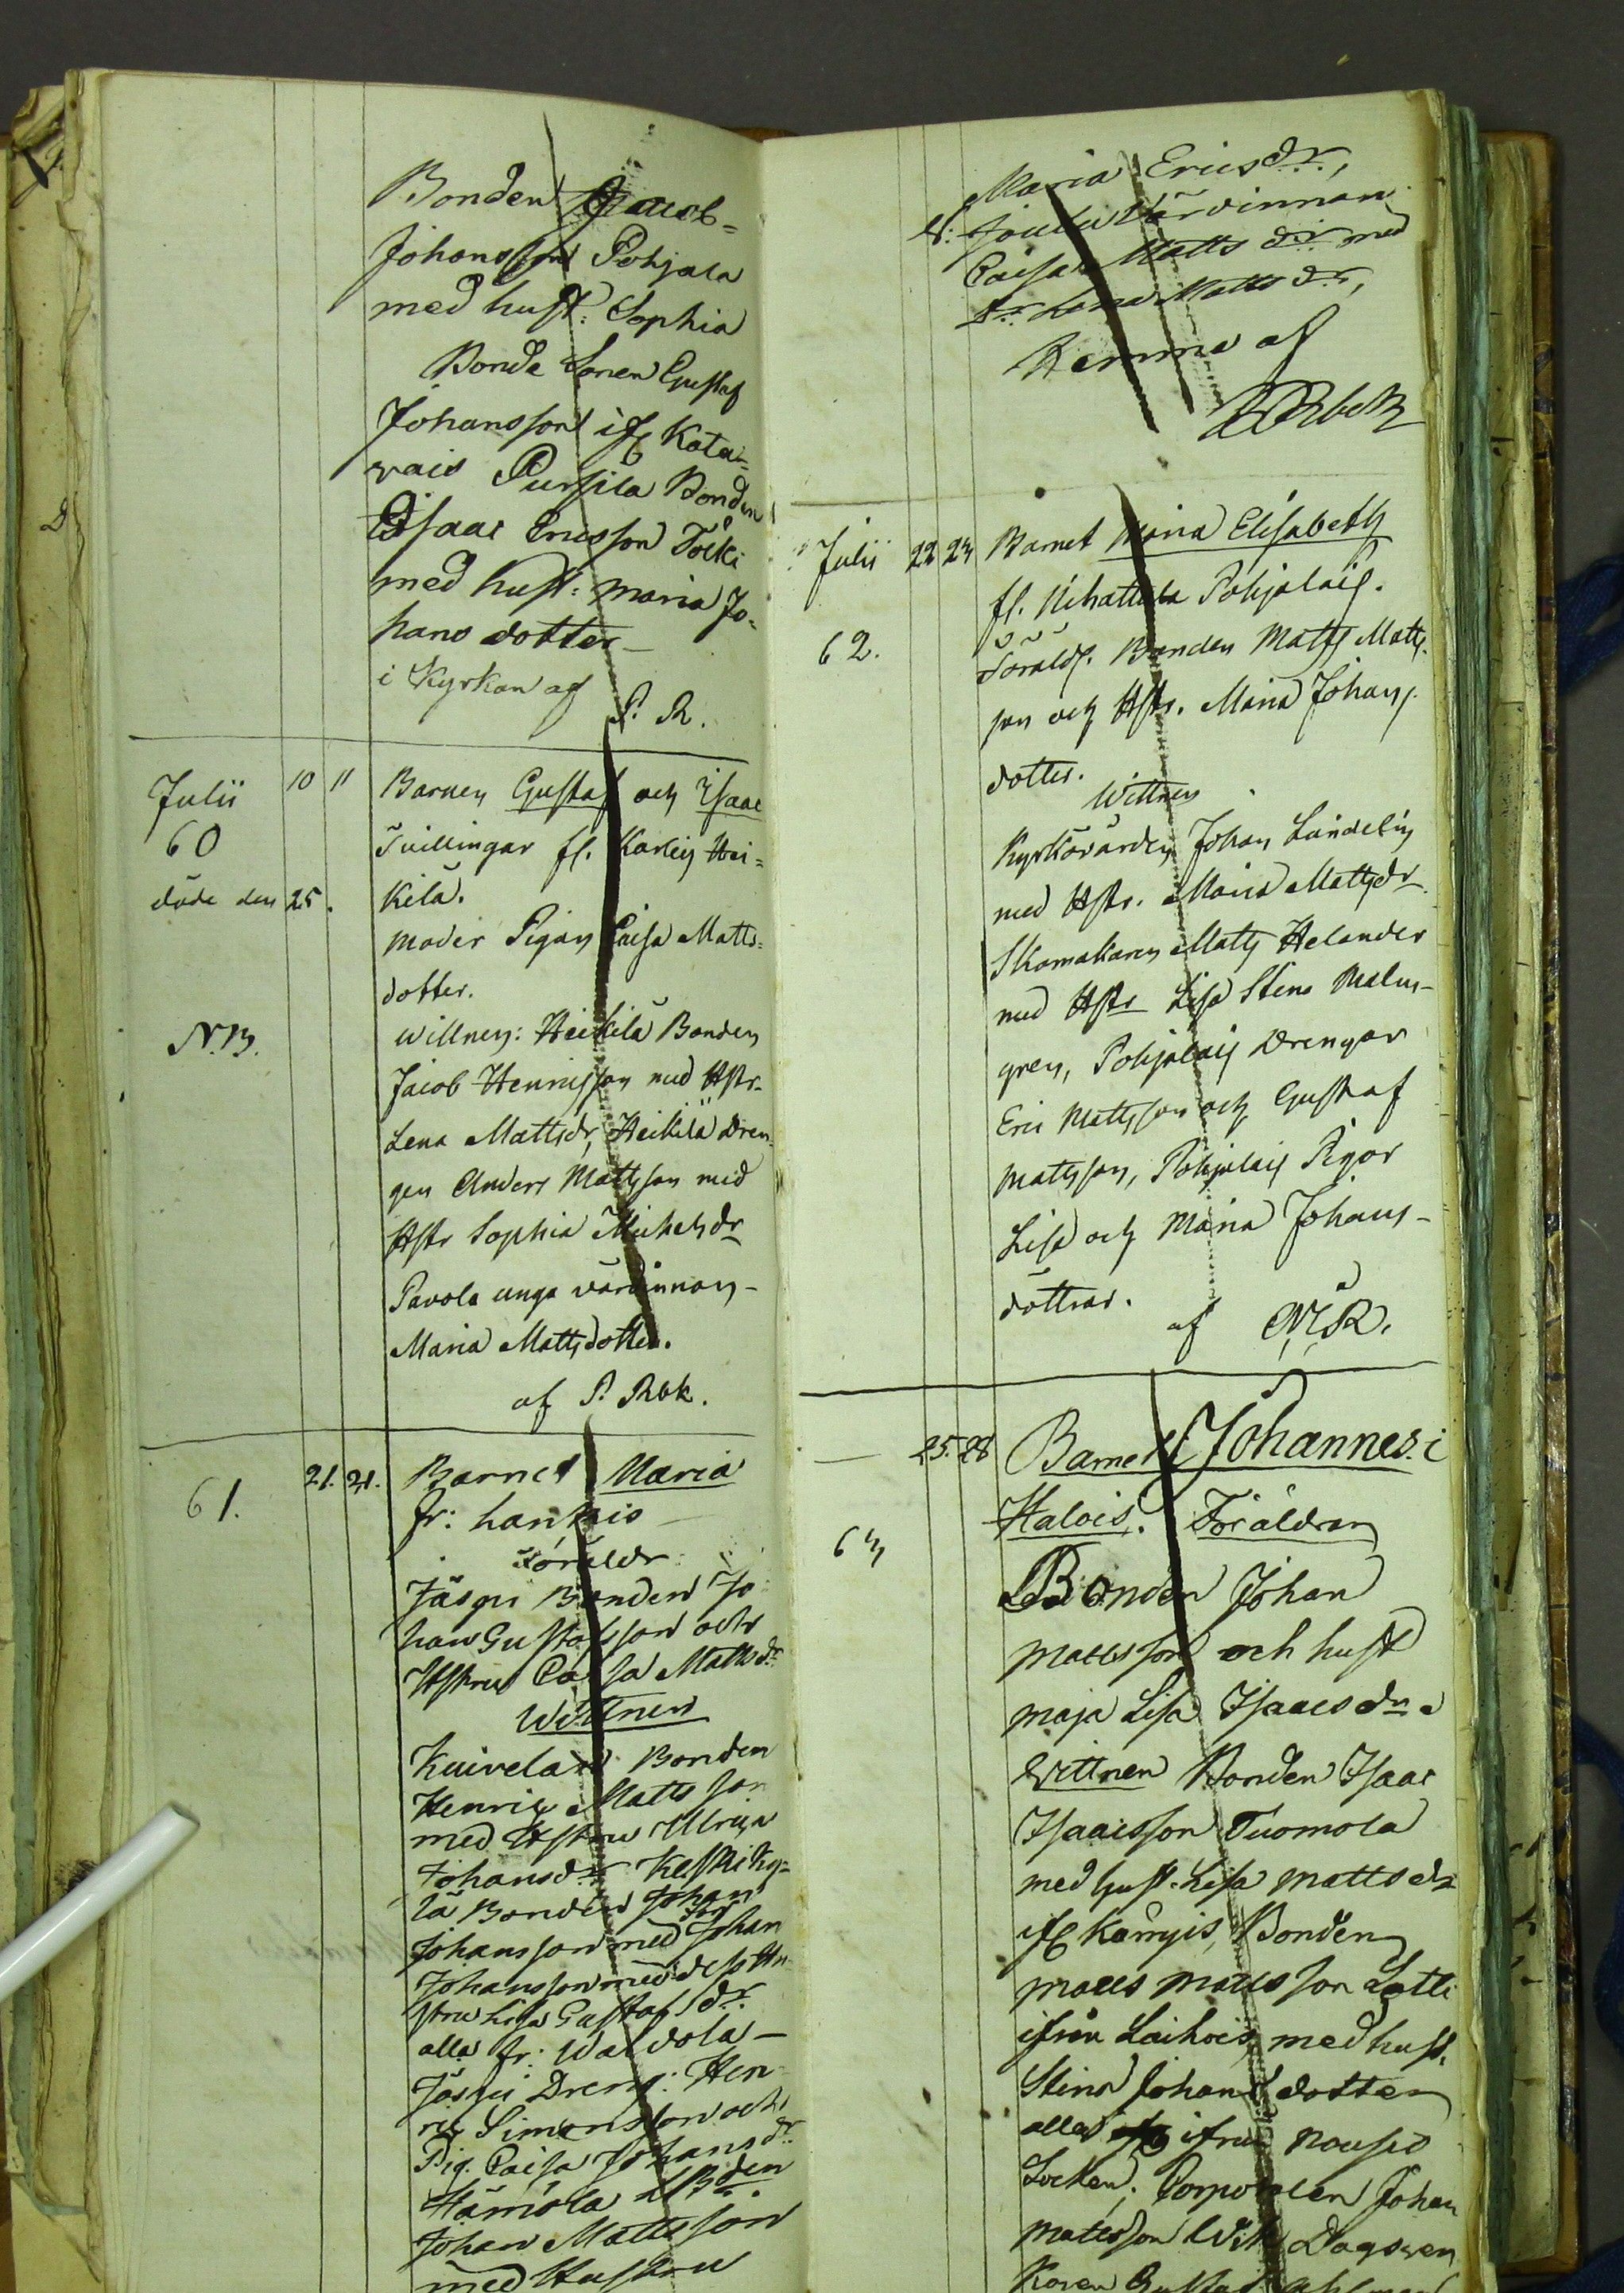 Bonden Jacob
Johansson Pohjala
med hust: Sophia
Bonde Sonen Gustaf
Johansson ifr Kata-
rais Pursila Bonden
Isaac Ericsson Tolki
med hust: Maria Jo-
hans dotter
i Kyrkan af
P. R.
Julii 10 11 Barnen Gustaf och Isaac
60 Tvillingar fr. Karlein Hei-
döde den 25. kilä.
moder Pigan Caisa Matts-
dotter.
N.B. Wittnen: Heikilä Bonden
Jacob Henricsson med Hstr.
Lena Mattsdr, Heikilä Dren-
gen Anders Mattsson med
Hstr Sophia Michelsdr
Pavola unga värdinnan
Maria Mattsdotter.
af P. Rbk.
61. 21. 21. Barnet Maria
fr: hankais
Föräldr:
Jäspi Bonden Jo-
han Gustafsson och
Hstru Caisa Mattsdr
Wittnen
Kuivela Bonden
Henric Mattsson
med Hstru Ulrica
Johansdr Keskiky-
lä Bonden Johan
Johansson med Johan
Johansson med dess Hu-
stru Lisa Gustafsdr.
alla fr:
Dreng: Hen-
ric Simonsson och
Pig. Caisa Johansdr
Hämöla Bden
Johan Mattsson
med Hustru
Maria Ericsdr,
Joulu Värdinnan
Caisa Mattsdr med
dr. Lena Matts dr,
Hemma af
Julii 22 23 Barnet Maria Elisabeth
fr. Nihattula Pohjolais.
62. Föräldr. Bonden Matts Matts-
son och Hstr. Maria Johans-
dotter.
Wittnen
Kyrkovärden Johan Lundelin
med Hstr. Maria Mattsdr
Skomakaren Matts Helander
med Hstr Lisa Stina Malm-
gren, Pohjolais Drengar
Eric Mattsson och Gustaf
Mattsson, Pohjolais Pigor
Lisa och Maria Johans-
döttrar.
af
25. 28 Barnet Johannes i
Halois. Föräldran
63 Bonden Johan
Mattsson och hust
Maja Lisa Isaacsdr
Wittnen Bonden Isaac
Isaacsson Tuomola
med hust. Lisa Mattsdr
ifr Kangis, Bonden
Matts Mattsson Latti
ifrån Laihois, med hust.
Stina Johans dotter
alla ifrån Nousis
Socken; Corporalen Johan
Mattsson Dagsven
Karen Gustaf